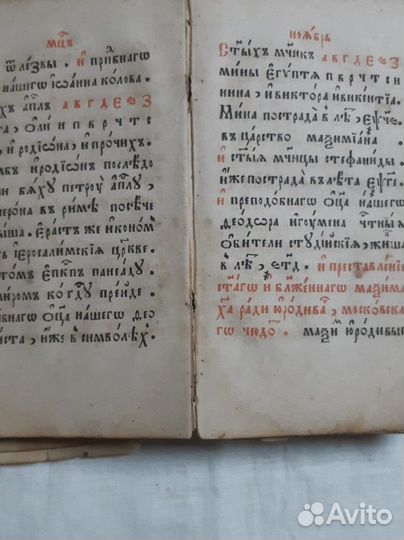 мц҃ъ
ѿ лѕвы. и прп҃бнагѡ
нашегѡ іѡанна колова.
хъ ап҃лъ а в г д е ѕ з
та, ѻли и п в р ч т с
, иродіѡна, и прочихъ.
мъ иродіѡнъ послѣдо
и бѧху петроу ап҃лу,
нерона в римѣ посѣче
ыша. ерастъ же иконом
въ іерⷭ҇алимскіѧ цр҃кве.
томъ еп҃кпъ панеаду.
миромъ ко гд҃у преиде.
бнагѡ ѻц҃а нашегѡ ѳео
иста, иже в симвѡлѣхъ.
ноѧбрь
Ст҃ыхъ мч҃нкъ а в г д е ѕ з
мины египтѧ п в р ч т с и
нина, и виктора и викентіа.
Мина пострада в лѣ,
въ царство маѯиміана.
и ст҃ыѧ мч҃нцы стефаниды.
иже пострада в лѣта
и преподобнагѡ ѻц҃а нашегѡ
ѳеодѡра игоумена чтныѧ
ѻбители студійскіѧ, жиша
в лѣ, и преставленіе
ст҃агѡ и бл҃женнагѡ маѯима
ха ради юродива, московска
гѡ чюдо. маѯи юродивыи
Avito